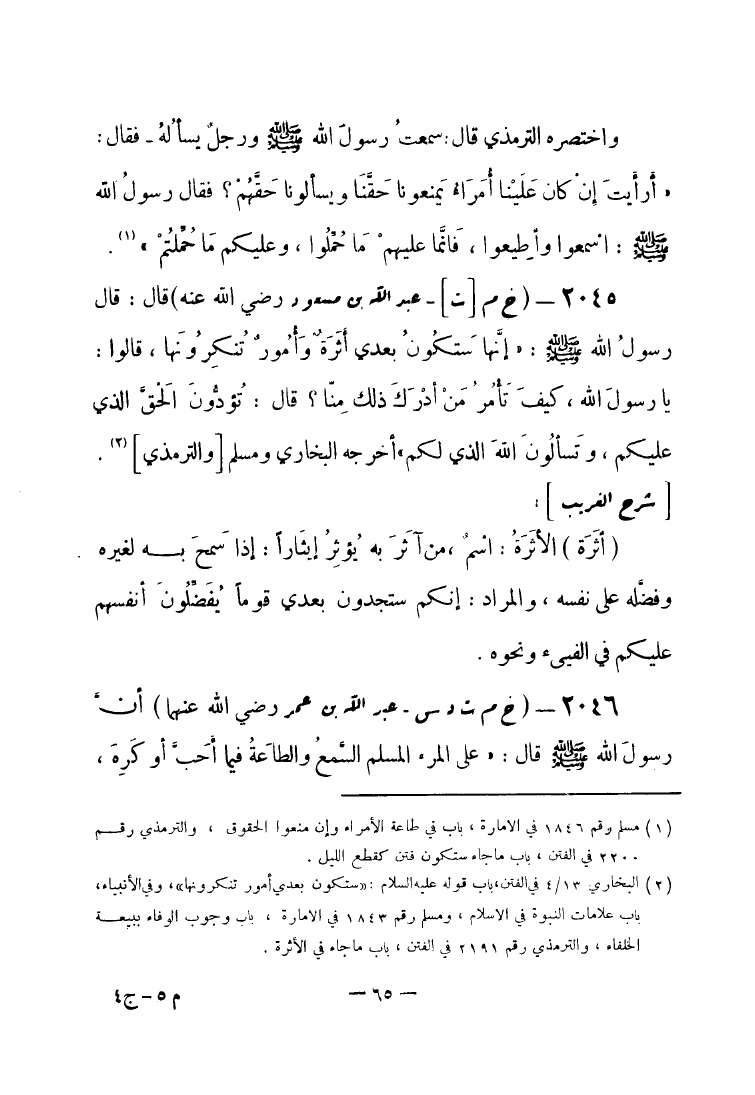 واختصره الترمذي قال: سمعتُ رسولَ الله ﷺ ورجلٌ يسألُهُ ـ فقال :
« أرأيتَ إنْ كان عَلَيْنا أُمَراءُ يَمنعونا حَقَّنَا ويسألونا حَقَّهُمْ ؟ فقال رسولُ الله
ﷺ : اسْمعوا وأطيعوا ، فَإنَّما عليهمْ مَا حُمِّلُوا ، وعليكم مَا حُمِّلْتُمْ » (١) .
٢٠٤٥ — ( خ م [ ت ] ـ عبد الله بن مسعود رضي الله عنه) قال : قال
رسولُ الله ﷺ : « إنَّها سَتكونُ بعدي أَثَرَةٌ وَأُمورٌ تُنكِرُونَها ، قالوا :
يا رسولَ الله ، كيفَ تَأْمُرُ مَنْ أدْرَكَ ذلك مِنّا ؟ قال : تُؤدُّونَ الْحَقَّ الذي
عليكم ، وتَسألُونَ اللهَ الذي لكم» أخرجه البخاري ومسلم [ والترمذي ] (٢) .
[ شرح الغريب ] :
( أَثَرَة ) الأَثَرَةُ : اسْمٌ ، من آثَرَ به يُؤثِرُ إيثاراً : إذا سَمحَ بـــه لغيره
وفضَّله على نفسه ، والمراد : إنكم ستجدون بعدي قوماً يُفَضِّلُونَ أنفسهم
عليكم في الفيء ونحوه .
٢٠٤٦ — ( خ م ت د س ـ عبد الله بن عمر رضي الله عنهما ) أنَّ
رسولَ الله ﷺ قال : « على المرء المسلم السَّمعُ والطاعَةُ فيما أَحَبَّ أو كَرِهَ ،
( ١ ) مسلم رقم ١٨٤٦ في الامارة ، باب في طاعة الأمراء وإن منعوا الحقوق ، والترمذي رقــم
٢٢٠٠ في الفتن ، باب ماجاء ستكون فتن كقطع الليل .
( ٢ ) البخاري ٤/١٣ في الفتن، باب قوله عليه السلام : «ستكون بعدي أمور تنكرونها»، وفي الأنبياء،
باب علامات النبوة في الاسلام ، ومسلم رقم ١٨٤٣ في الامارة ، باب وجوب الوفاء ببيعــة
الخلفاء ، والترمذي رقم ٢١٩١ في الفتن ، باب ماجاء في الأثرة .
— ٦٥ —
م ٥ – ج ٤